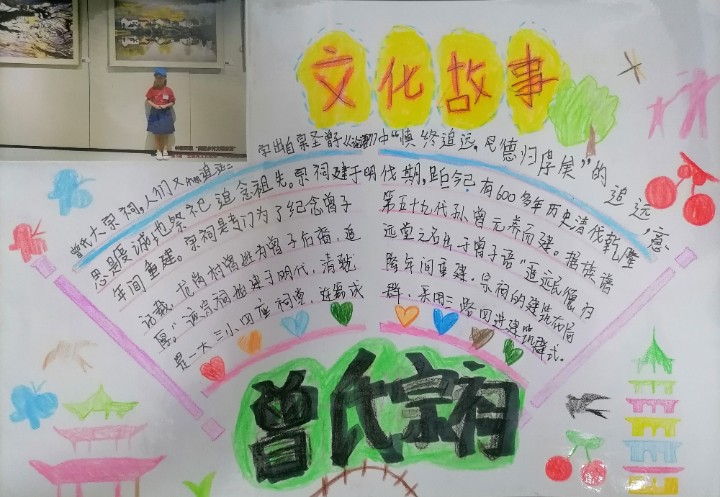 文化故事
曾氏大宗祠,人们又称追远二字出自宗圣曾子《论语》中“慎终追远,民德归厚矣”的追远,意
思是虔诚地祭祀追念祖先。宗祠建于明代期,距今已有600多年历史清代乾隆
年间重建。宗祠是专门为了纪念曾子第五十九代孙曾元养而建。据族谱
记载,村曾姓为曾子后裔,追远堂之名出于曾子语“追远民德归
厚。”该宗祠始建于明代,清乾隆年间重建,宗祠的建筑布局
是一大三小四座祠堂,连群,采用三路四进建筑样式。
曾氏宗